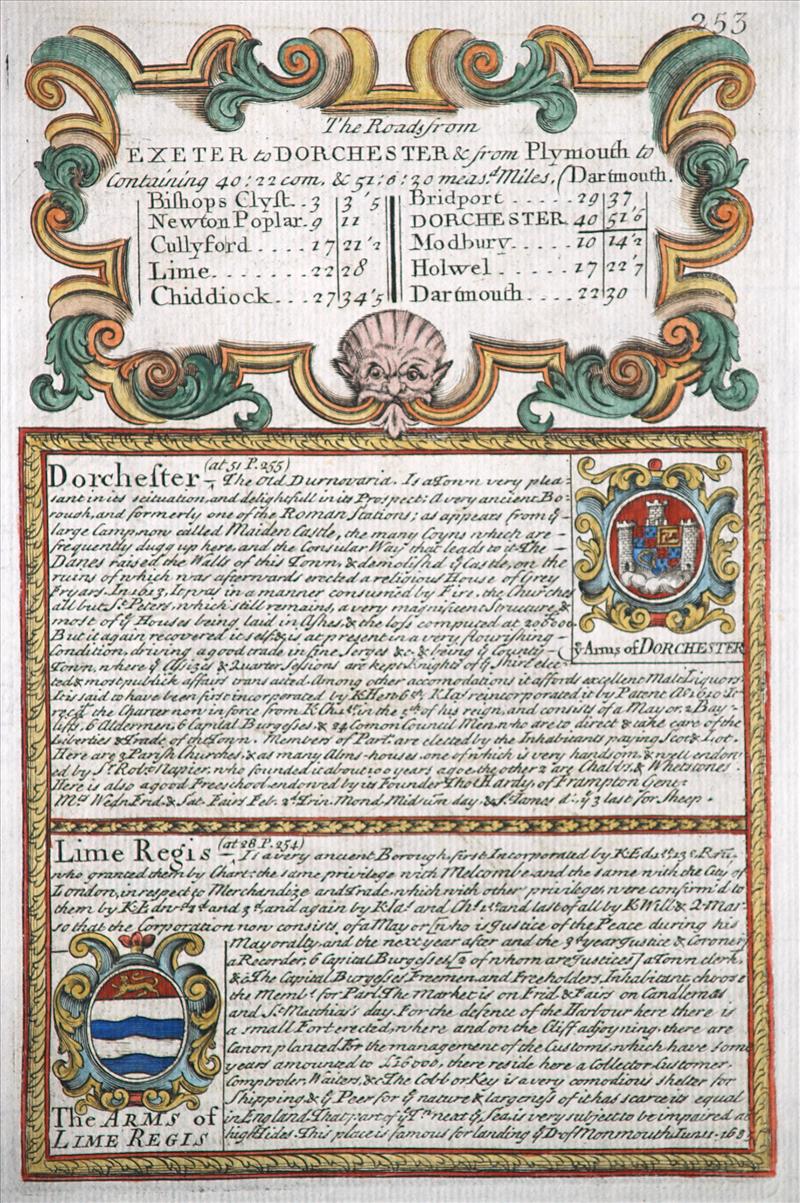 253
The Roads from
EXETER to DORCHESTER & from Plymouth to
Containing 40:22 com, & 51:6:30 meas.d Miles, (Dartmouth.
Bishops Clyst.. 3 3'5
Newton Poplar. 9 11
Cullyford .... 17 21'2
Lime....... 22 28
Chiddiock... 27 34'5
Bridport ..... 29 37,
DORCHESTER 40 51'6
Modbury..... 10 14'2
Holwel ...... 17 22'7
Dartmouth.... 22 30
Dorchester (at 51 P.255) The Old Durnovaria. Is a Town very plea-
sant in its scituation, and delightfull in its Prospect: A very ancient Bo-
rough, and formerly one of the Roman Stations; as appears from ye
large Camp now called Maiden Castle, the many Coyns which are
frequently dugg up here, and the Consular Way that leads to it. The
Danes raised the Walls of this Town, & demolish'd ye Castle, on the
ruins of which was afterwards erected a religious House of Grey
Fryars. In 1613, It was in a manner consumed by Fire, the Churches
all but St Peters, which still remains, a very magnificent Structure, &
most of ye Houses being laid in Ashes, & the loss computed at 200000
But it again recovered it self, & is at present in a very flourishing
Condition, driving a good trade in fine Serges &c. & being ye County-
Town, where ye Assizes & Quarter Sessions are kept, Knights of ye Shire elec-
ted & most publick affairs transacted. Among other accomodations it affords excellent Malt Liquors
It is said to have been first incorporated by K Hen 6th, K Jas reincorporated it by Patent Ao 1610. It
recd the Charter now in force from K Cha 1st in the 5th of his reign, and consists of a Mayor, 2 Bay-
liffs, 6 Aldermen, 6 Capital Burgesses, & 24 Comon Council Men, who are to direct & take care of the
Liberties & Trade of the Town. Members of Part. are elected by the Inhabitants paying Scot & Lot.
Here are 3 Parish Churches, & as many Alms-houses, one of which is very handsom, & well endow
ed by Sr Robt Napier, who founded it about 100 years agoe, the other 2 are Chalds, & Whetstones.
Here is also a good Freeschool endowed by its Founder Tho Hardy, of Frampton Gent
Mts Wedn Frid. & Sat. Fairs Feb. 2d Trin. Mond. Midsum day, & St James d. ye 3 last for Sheep.
ye Arms of DORCHESTER
Lime Regis (at 28 P. 254) Is a very ancient Borough, first Incorporated by K Ed 1st
who granted them by Chart. the same privilege with Melcombe and the same with the City of
London, in respect to Merchandize and Trade, which with other privileges were confirm'd to
them by K. Edwd 2d and 3d, and again by K Jas and Ch. 1st and last of all by K Will & Q Mar.
so that the Corporation now consists, of a Mayor [who is Justice of the Peace during his
Mayoralty and the next year after and the 3d year Justice & Coroner]
a Recorder, 6 Capital Burgesses [2 of whom are Justices] a Town clerk,
&c. The Capital Burgesses Freemen and Freeholders, Inhabitant, choose
the Membs for Parl. The Market is on Frid. & Fairs on Candlemas
and St Matthias's day. For the defence of the Harbour here there is
a small Fort erected, where and on the Cliff adjoyning, there are
Canon planted. For the management of the Customs, which have some
years amounted to £16000, there reside here a Collector, Customer,
Comptroler, Waiters, &c. The Cobb or Key is a very comodious shelter for
Shipping & ye Peer for ye nature & largeness of it has scarce its equal
in England. That part of ye Tn next ye Sea is very subject to be impaired at
high Tides. This place is famous for landing ye D. of Monmouth Jun 11. 1685
The ARMS of
LIME REGIS